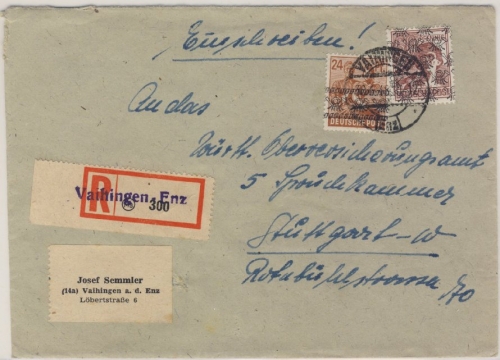 Einschreiben!
24
DEUTSCHE POST
VAIHINGEN
(ENZ)
An das
Württ. Oberversicherungsamt
5 Spruchkammer
Stuttgart-W
Rotebühlstrasse 70
R
Vaihingen, Enz
300
Josef Semmler
(14a) Vaihingen a. d. Enz
Löbertstraße 6